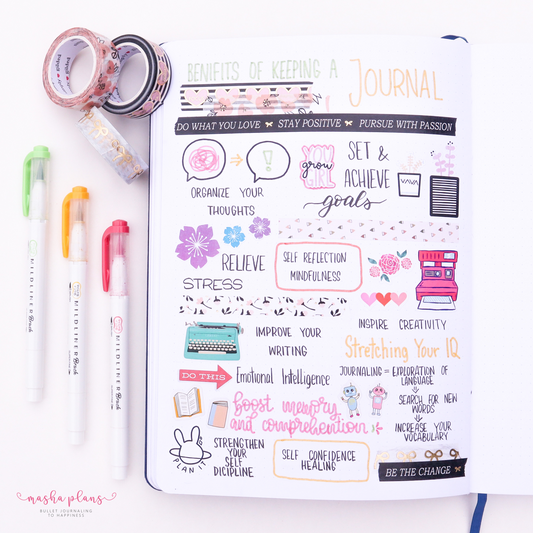 BENIFITS OF KEEPING A JOURNAL
DO WHAT YOU LOVE STAY POSITIVE PURSUE WITH PASSION
ORGANIZE YOUR
THOUGHTS
YOU
grow
GIRL
SET &
ACHIEVE
goals
VAVA
RELIEVE
STRESS
SELF REFLECTION
MINDFULNESS
INSPIRE CREATIVITY
IMPROVE YOUR
WRITING
Stretching Your IQ
DO THIS
Emotional Intelligence
JOURNALING = EXPLORATION OF
LANGUAGE
SEARCH FOR NEW
WORDS
INCREASE YOUR
VOCABULARY
boost memory
and comprehention
PLAN IT
STRENGTHEN
YOUR
SELF
DICIPLINE
SELF CONFIDENCE
HEALING
BE THE CHANGE
MILDLINER Brush
MILDLINER Brush
MILDLINER Brush
masha plans
BULLET JOURNALING
TO HAPPINESS